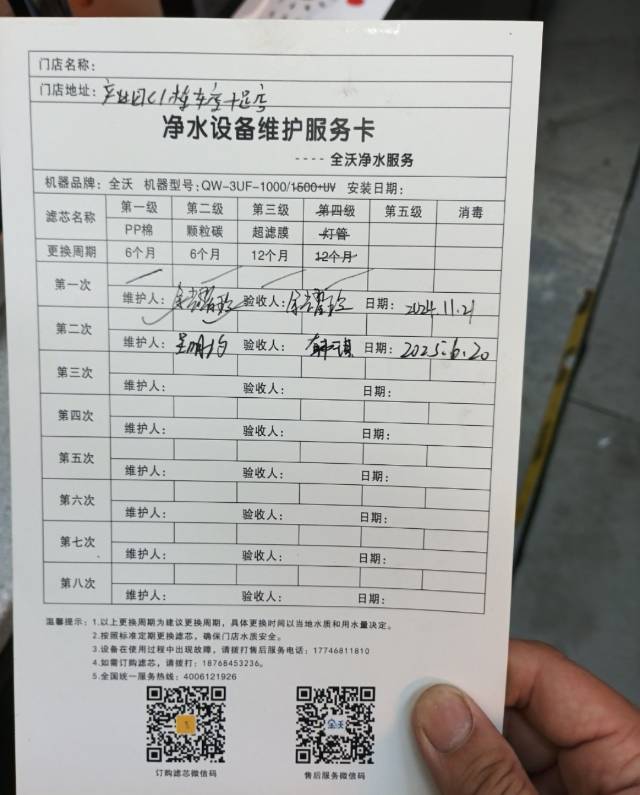 门店名称:
门店地址:
净水设备维护服务卡
---- 全沃净水服务
机器品牌: 全沃 机器型号:QW-3UF-1000/1500+UV 安装日期:
滤芯名称 第一级 第二级 第三级 第四级 第五级 消毒
PP棉 颗粒碳 超滤膜 灯管
更换周期 6个月 6个月 12个月 12个月
第一次
维护人: 验收人: 日期: 2024.11.21
第二次
维护人: 验收人: 日期: 2025.6.20
第三次
维护人: 验收人: 日期:
第四次
维护人: 验收人: 日期:
第五次
维护人: 验收人: 日期:
第六次
维护人: 验收人: 日期:
第七次
维护人: 验收人: 日期:
第八次
维护人: 验收人: 日期:
温馨提示: 1.以上更换周期为建议更换周期,具体更换时间以当地水质和用水量决定。
2.按照标准定期更换滤芯,确保门店水质安全。
3.设备在使用过程中出现故障,请拨打售后服务电话: 17746811810
4.如需订购滤芯,请拨打: 18768453236。
5.全国统一服务热线: 4006121926
全沃
订购滤芯微信码 售后服务微信码